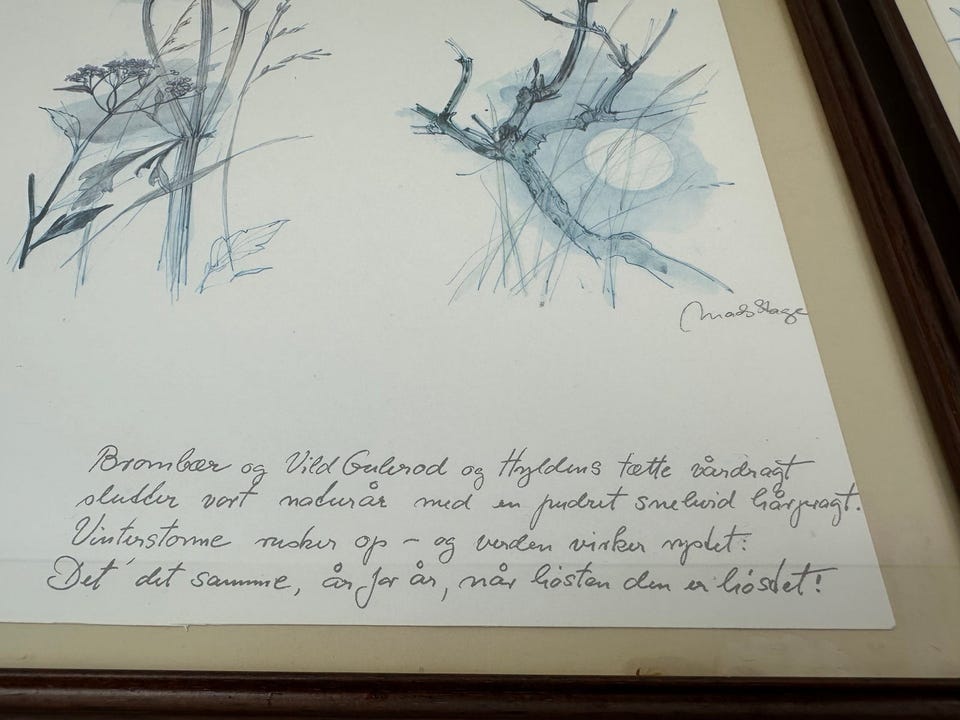 Mads Stage
Brombær og Vild Gulerod og Hyldens tætte vårdragt
slutter vort naturår med en pudret snehvid hårpragt.
Vinterstorme rusker op - og verden virker rystet:
Det' det samme, år for år, når høsten den er høstet!